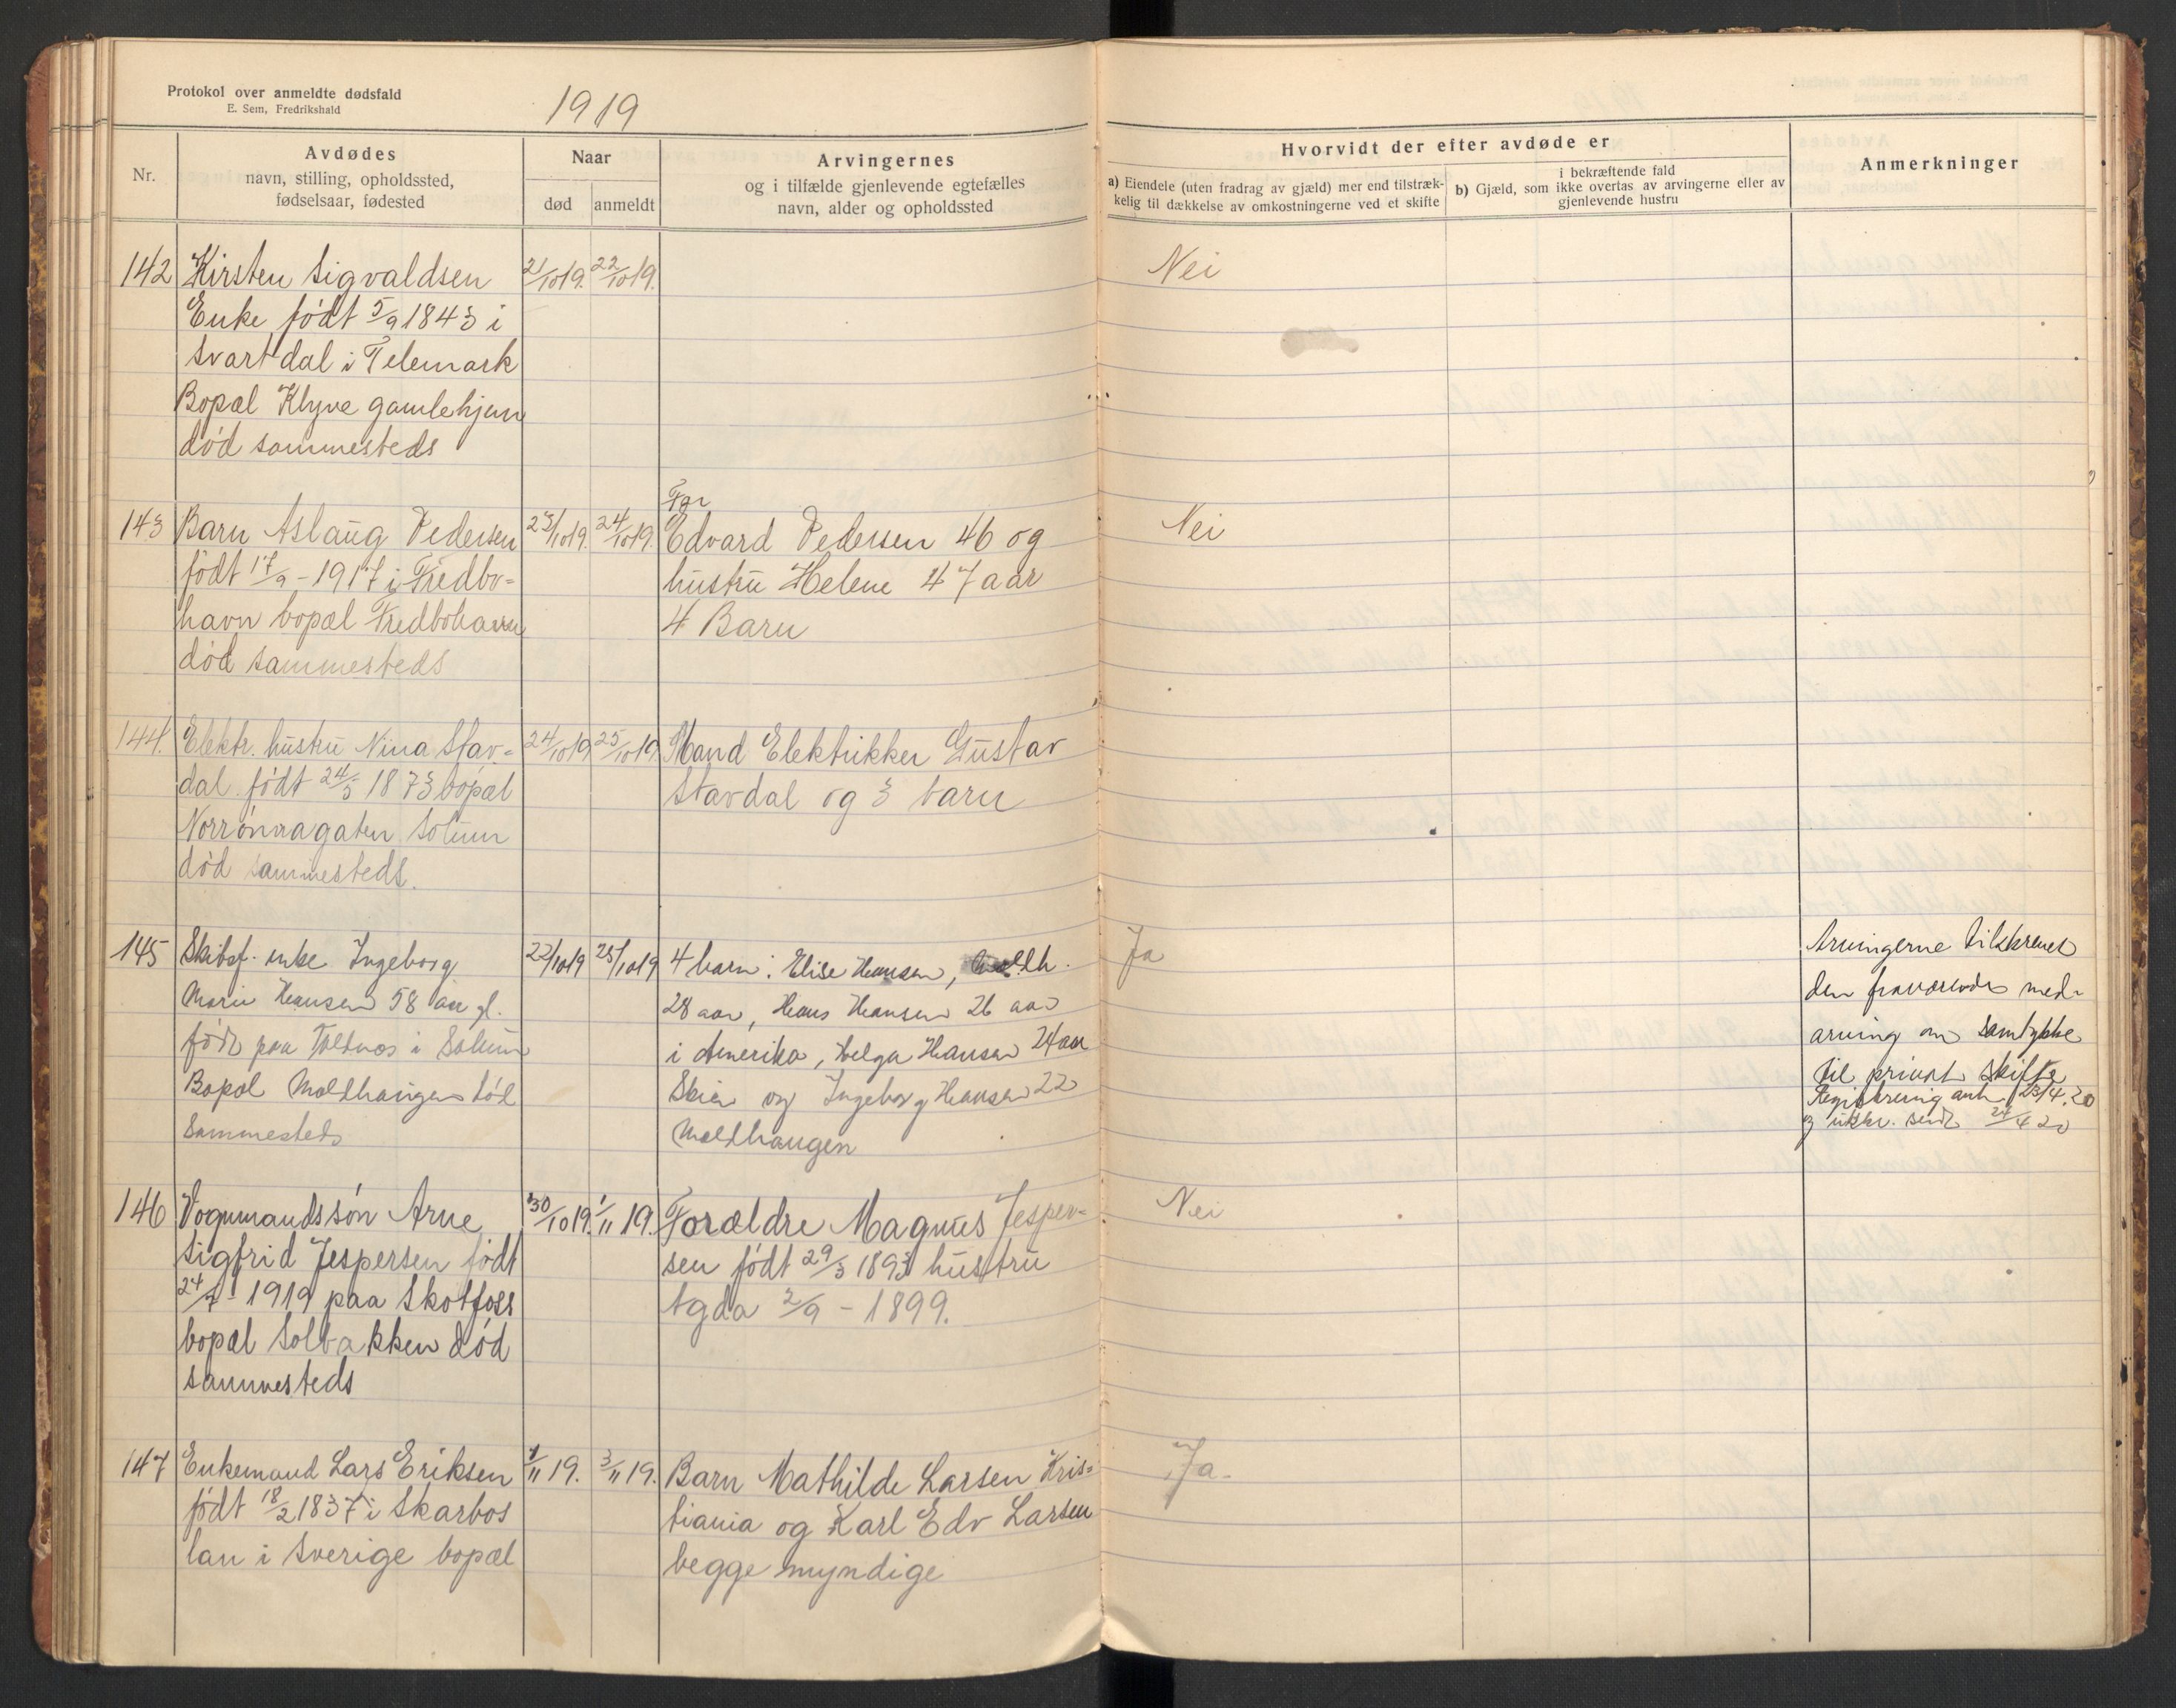 Protokol over anmeldte dødsfald
E. Sem, Fredrikshald
1919
Nr.
Avdødes
navn, stilling, opholdssted,
fødselsaar, fødested
Naar
død
anmeldt
Arvingernes
og i tilfælde gjenlevende egtefælles
navn, alder og opholdssted
Hvorvidt der efter avdøde er
a) Eiendele (uten fradrag av gjæld) mer end tilstræk-
kelig til dækkelse av omkostningerne ved et skifte
i bekræftende fald
b) Gjæld, som ikke overtas av arvingerne eller av
gjenlevende hustru
Anmerkninger
142 Kirsten Sigvaldsen 21/10 19. 22/10 19. Nei
Enke født 5/9 1843 i
Svartdal i Telemark
Bopæl Klyve gamlehjem
død sammesteds
Far
143 Barn Aslaug Pedersen 23/10 19. 24/10 19. Edvard Pedersen 46 og Nei
født 17/9 - 1917 i Fredbo- hustru Helene 47 aar
havn bopæl Fredbohavn 4 Barn
død sammesteds
144. Elektr. hustru Nina Stav- 24/10 19 25/10 19. Mand Elektrikker Gustav
dal født 24/5 1873 bopæl Stavdal og 3 barn
Norrønnagaten Solum
død sammesteds.
145 Skibsf. enke Ingeborg 22/10 19 28/10 19 4 barn: Elise Hansen, Ja Arvingerne tilskrevet
Marie Hansen 58 aar gl. 28 aar, Hans Hansen 26 aar den fraværende med-
født paa Toltnæs i Solum i Amerika, Helga Hansen 24 aar arving om samtykke
Bopæl Molthaugen død Skien og Ingeborg Hansen 22 til privat skifte
Sammesteds Molthaugen Registrering anh. 23/4.20
og utskr. sendt 24/4 20
146 Vognmandssøn Arne 30/10 19. 1/11 19. Forældre Magnus Jesper- Nei
Sigfrid Jespersen født sen født 29/3 1893 hustru
24/7 - 1919 paa Skotfoss Agda 2/9 - 1899.
bopæl Solbakken død
sammesteds
147 Enkemand Lars Eriksen 1/11 19. 3/11 19. Barn Mathilde Larsen Kris- Ja.
født 18/2 1837 i Skarbos tiania og Karl Edv Larsen
lan i Sverige bopæl begge myndige